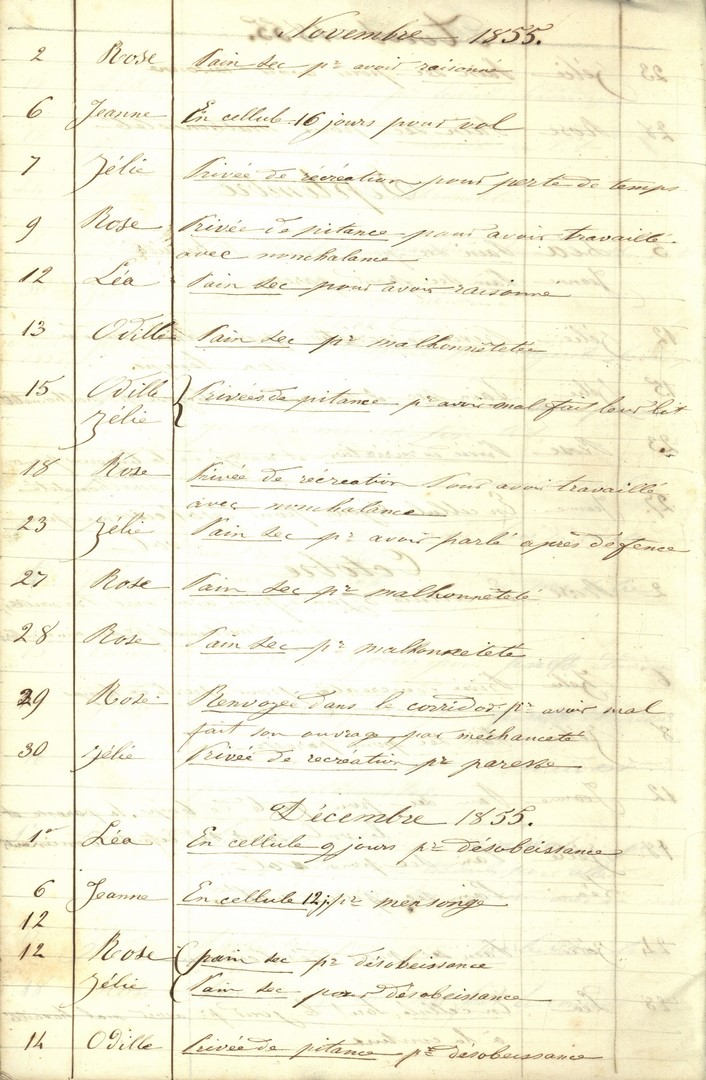 Novembre 1855.
2 Rose Pain sec pr avoir raisonné
6 Jeanne En cellule 16 jours pour vol
7 Zélie Privée de récréation pour perte de temps
9 Rose Privée de pitance pour avoir travaillé
avec nonchalance
12 Léa Pain sec pour avoir raisonné
13 Odille Pain sec pr malhonnêtetée
15 Odille Privées de pitance pr avoir mal fait leur lit
Zélie
18 Rose Privée de récréation Pour avoir travaillé
avec nonchalance
23 Zélie Pain sec pr avoir parlé après défence
27 Rose Pain sec pr malhonnêteté
28 Rose Pain sec pr malhonnêteté
29 Rose Renvoyée dans le corridor pr avoir mal
fait son ouvrage, par méchanceté
30 Zélie Privée de recreation pr paresse
Décembre 1855.
1er Léa En cellule 9 jours pr désobeissance
6 Jeanne En cellule 12 j. pr mensonge
12
12 Rose pain sec pr désobeissance
Zélie Pain sec pour désobeissance
14 Odille Privée de pitance pr désobeissance